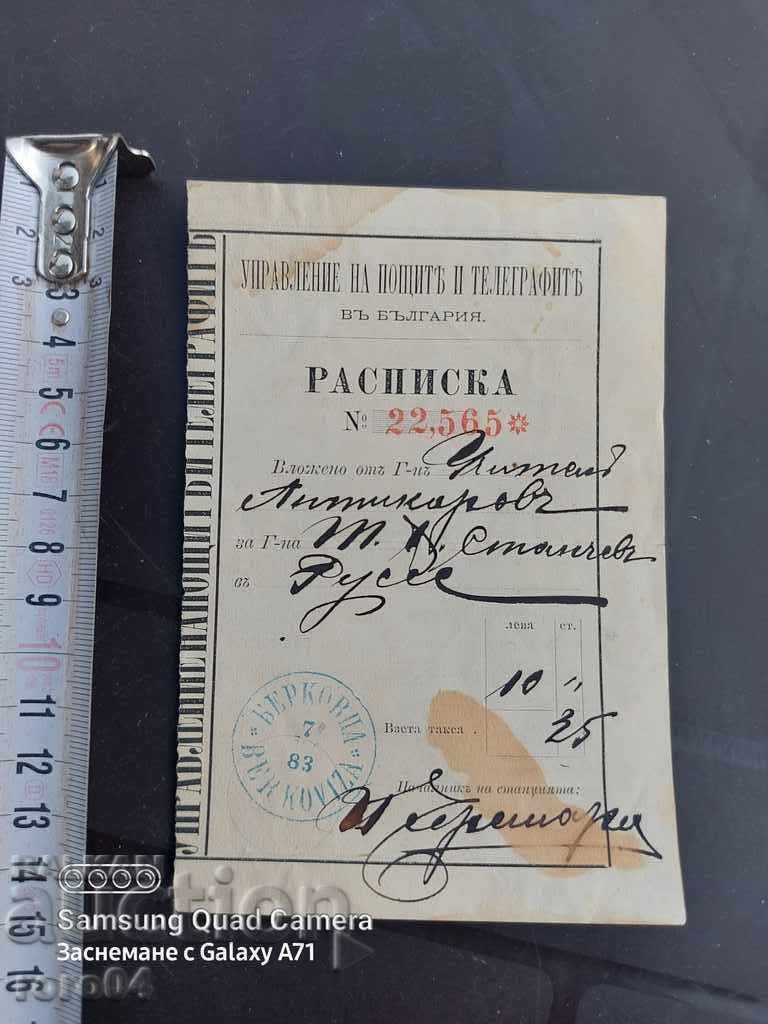 УПРАВЛЕНИЕ НА ПОЩИТѢ И ТЕЛЕГРАФИТѢ
ВЪ БЪЛГАРИЯ.
РАСПИСКА
№ 22,565
Вложено отъ Г-нъ Учителѣ
Антикаровъ
за Г-на Т. Х. Станчевъ
въ Руссе
лева ст.
10 „
Взета такса . 25
Началникъ на станцията:
БЕРКОВИЦА
7
83
BERKOVITZA
УПРАВЛЕНИЕ НА ПОЩИТѢ И ТЕЛЕГРАФИТѢ
1 2 3 4 5 6 7 8 9 10 11 12 13 14 15 16
BALKAN
auction
Samsung Quad Camera
Заснемане с Galaxy A71
toro04